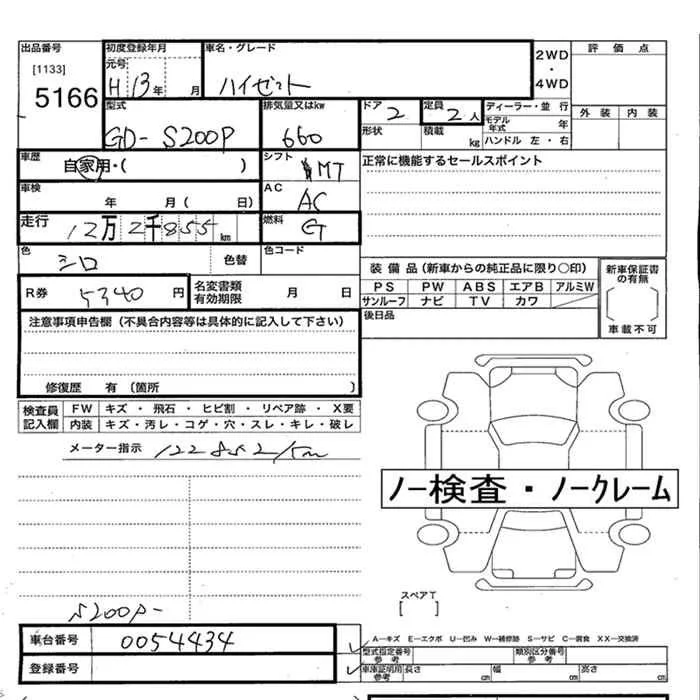 出品番号 初度登録年月 車名・グレード 2WD・4WD 評価点
[1133] 元号
5166 H 13年 月 ハイゼット
外装 内装
型式 排気量又はkw ドア 2 定員 2人 ディーラー・並行
GD-S200P 660 形状 積載 kg モデル年式 年
ハンドル 左・右
車歴 自家用・( ) シフト MT 正常に機能するセールスポイント
車検 年 月( 日) AC AC
走行 12万2千855km 燃料 G
色 シロ 色替 色コード
装備品(新車からの純正品に限り〇印) 新車保証書の有無
R券 5340円 名変書類有効期限 月 日
PS PW ABS エアB アルミW
サンルーフ ナビ TV カワ
後日品 車載不可
注意事項申告欄(不具合内容等は具体的に記入して下さい)
修復歴 有(箇所 )
検査員記入欄 FW キズ・飛石・ヒビ割・リペア跡・X要
内装 キズ・汚レ・コゲ・穴・スレ・キレ・破レ
メーター指示 122852/km
ノー検査・ノークレーム
スペアT
[ ]
S200P-
車台番号 0054434
A―キズ E―エクボ U―凹み W―補修跡 S―サビ C―腐食 XX―交換済
型式指定番号 参考 類別区分番号 参考
登録番号 車庫証明用 参考 長さ cm 幅 cm 高さ cm